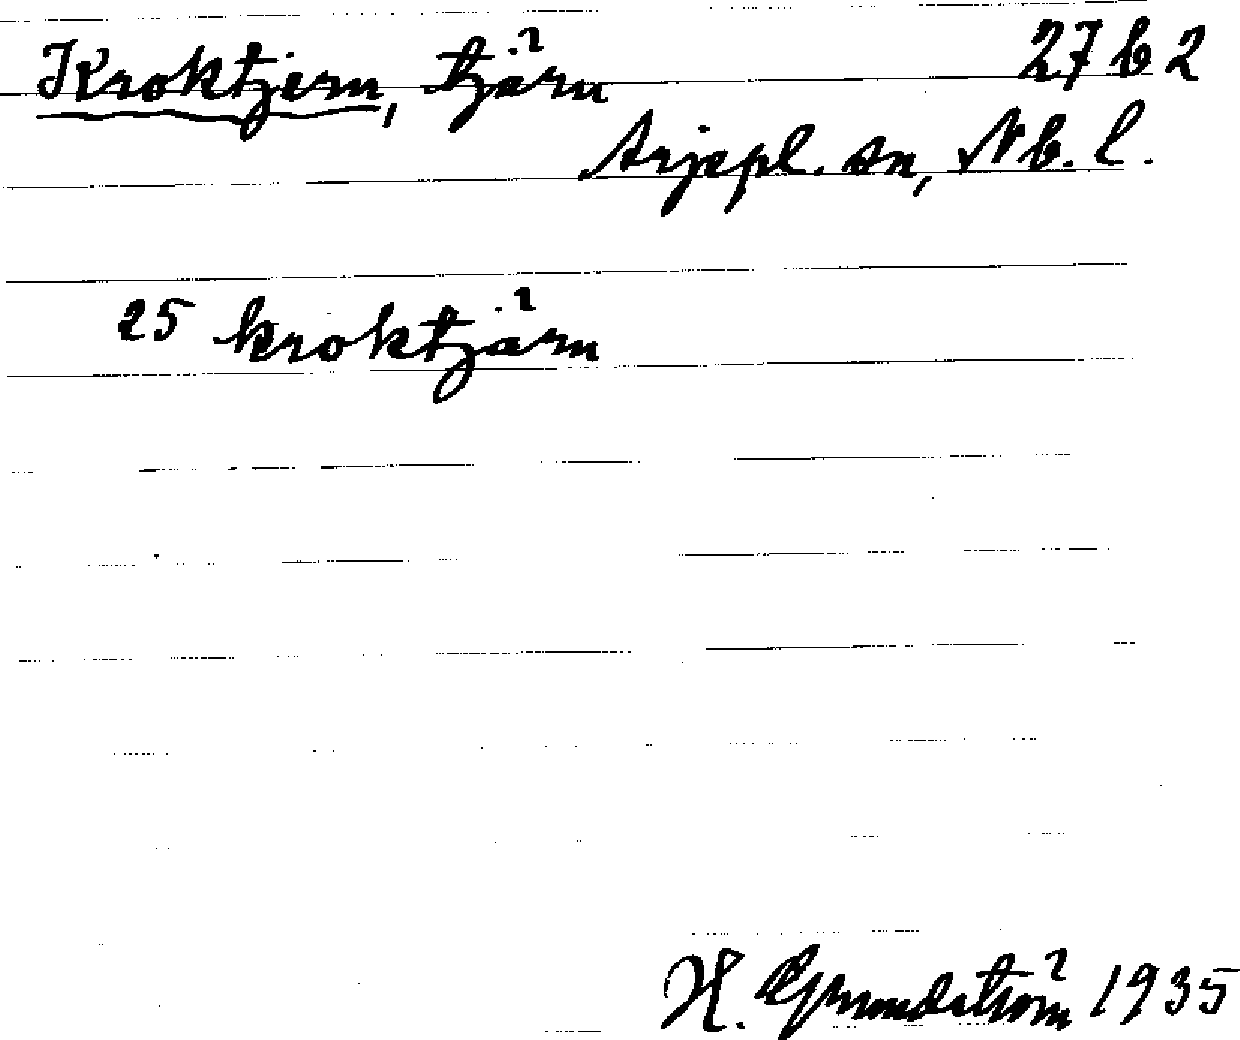 Kroktjern, tjärn 27 b 2
Arjepl. sn, Nb. l.
25 kroktjärn
H. Grundström 1935